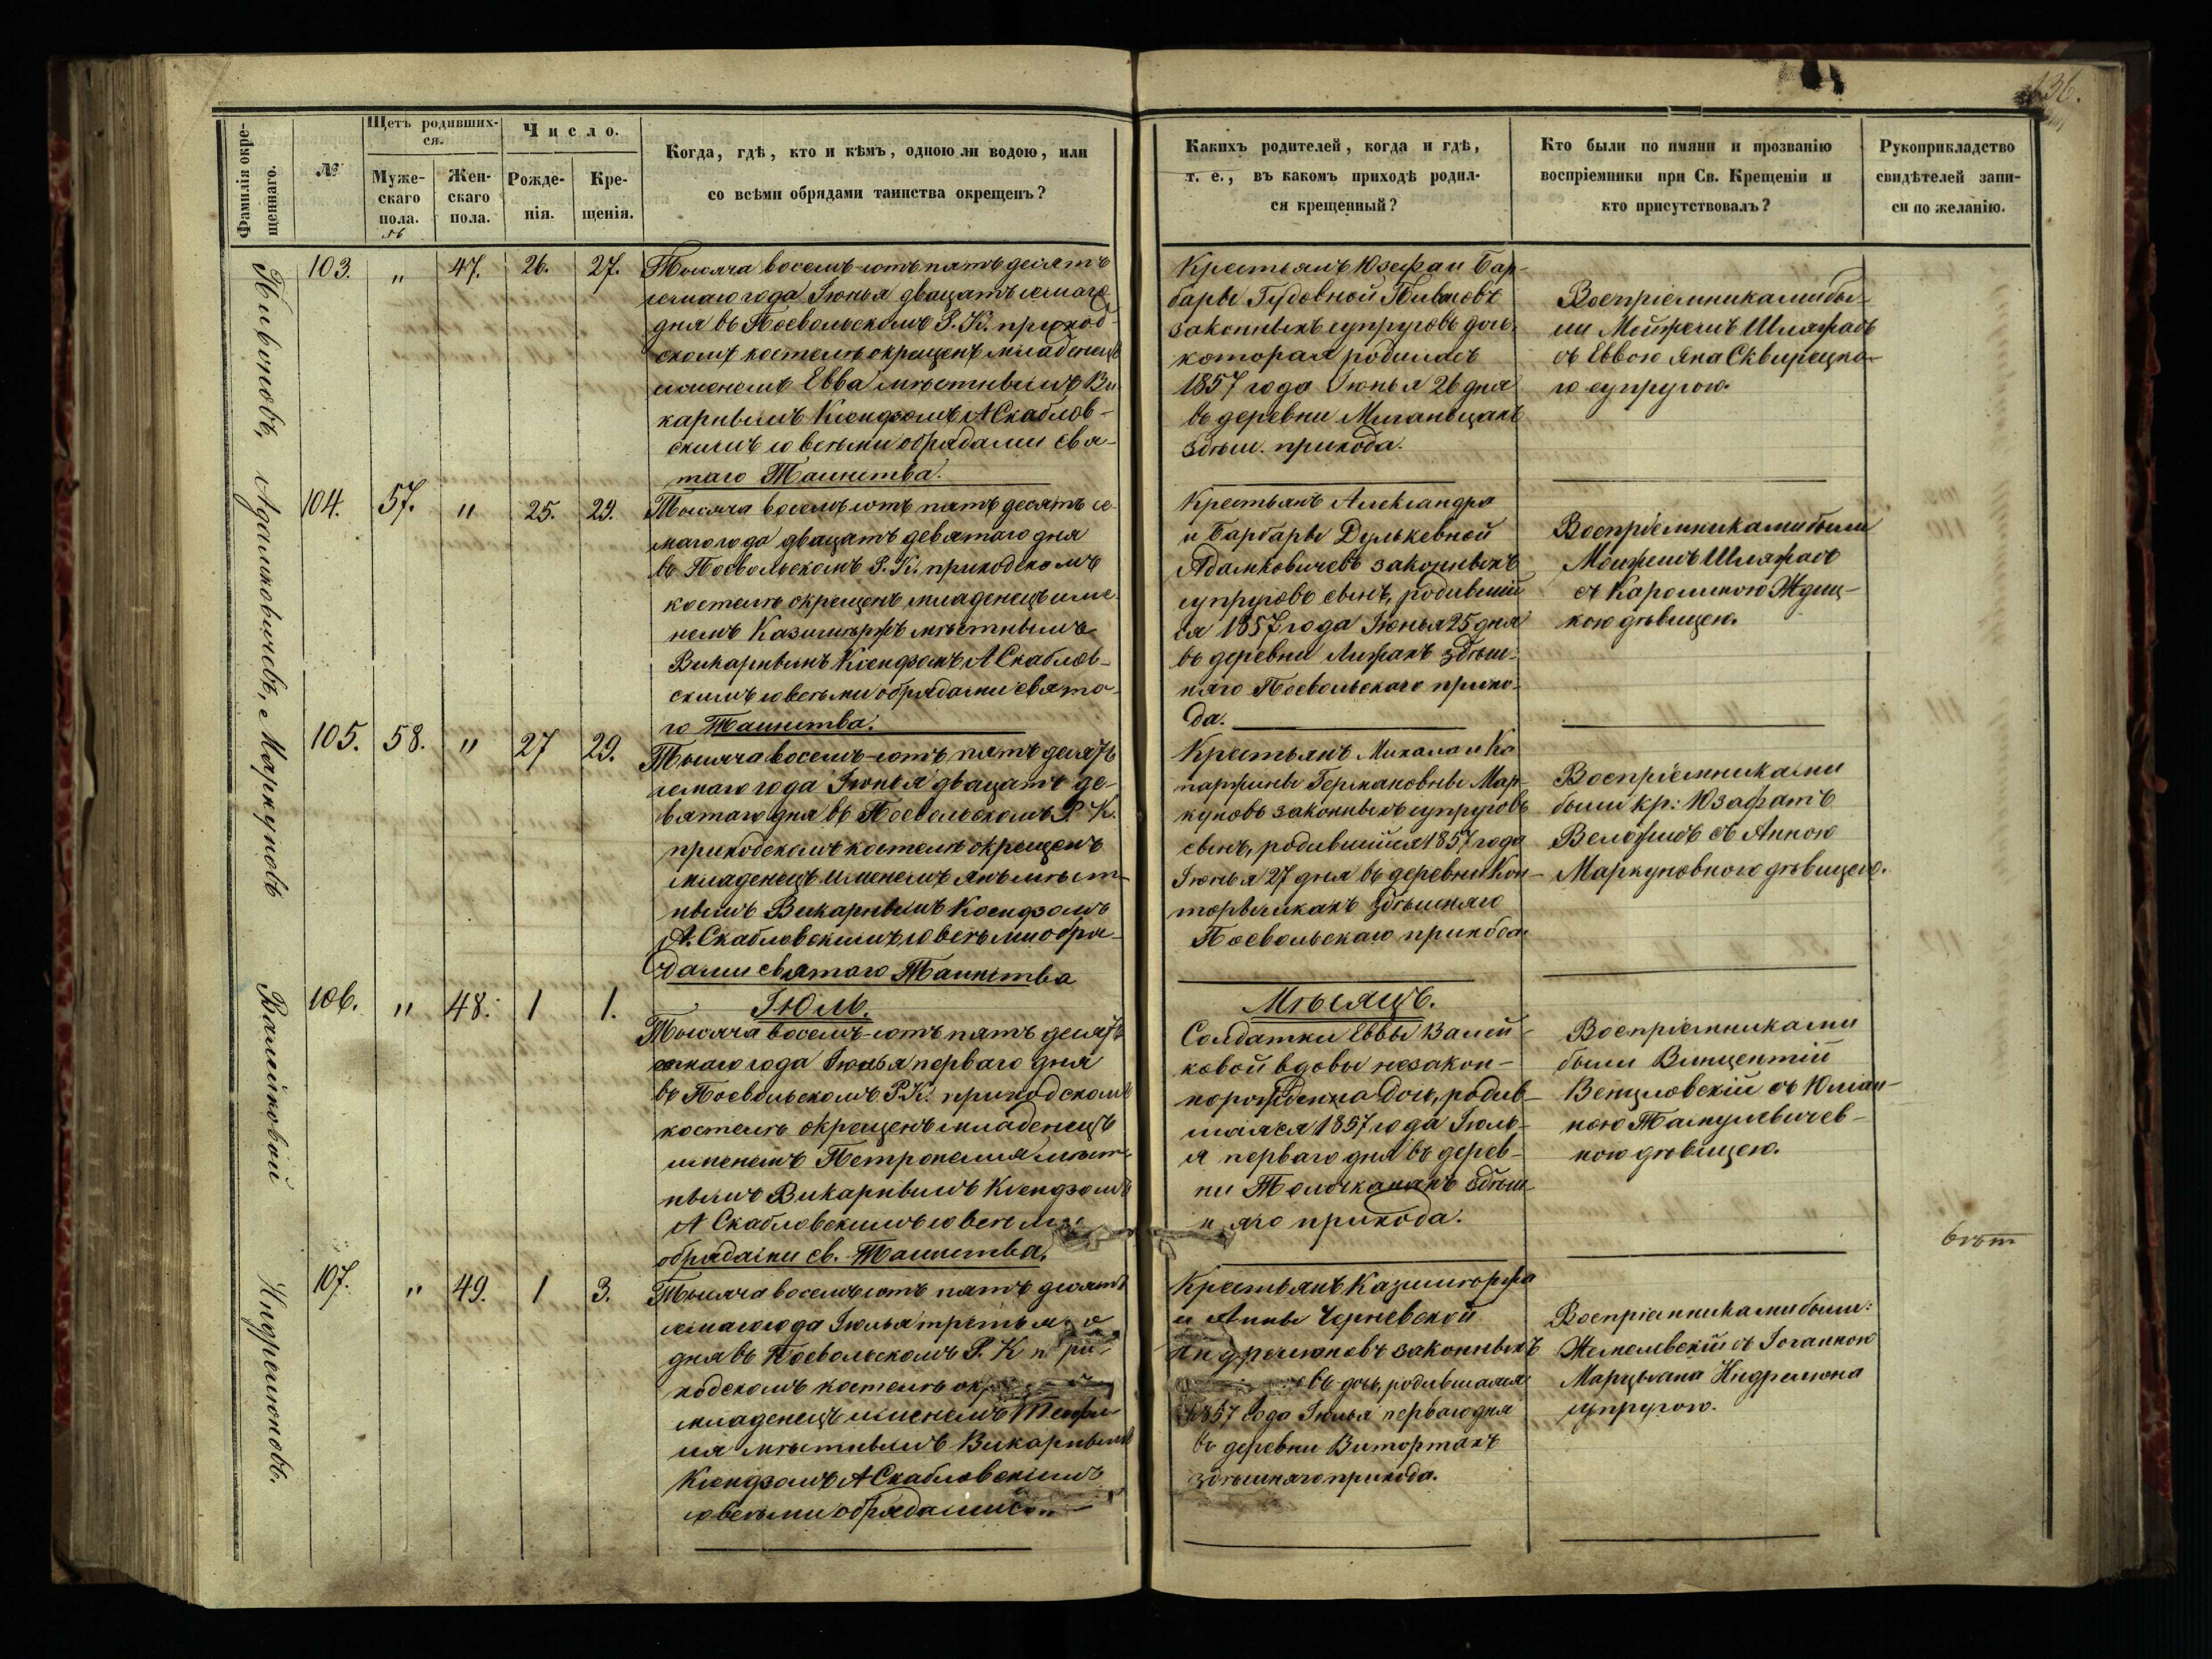 136.
Фамилія окре-
щеннаго.
№
Щетъ родивших-
ся.
Муже-
скаго
пола.
Жен-
скаго
пола.
Число.
Рожде-
нія.
Кре-
щенія.
Когда, гдѣ, кто и кѣмъ, одною ли водою, или
со всѣми обрядами таинства окрещенъ?
Какихъ родителей, когда и гдѣ,
т. е., въ какомъ приходѣ родил-
ся крещенный?
Кто были по имяни и прозванію
воспріемники при Св. Крещеніи и
кто присутствовалъ?
Рукоприкладство
свидѣтелей запи-
си по желанію.
Пивоновъ,
103.
"
47.
26.
27.
Тысяча восемъ-сотъ пятъ десятъ
семаго года Іюнья двацатъ семаго
дня въ Поевольскомъ Р. К. приход-
скомъ костелѣ окрещенъ младенецъ
именемъ Евва мѣстнымъ Ви
карнымъ Ксендзомъ А Скаблов-
скимъ со всѣми обрядами свя-
таго Таинства.
Крестьянъ Юзефа и Бар-
бары Гудовной Пивоновъ
законныхъ супруговъ дочь,
которая родилась
1857 года Іюнья 26 дня
въ деревни Миганцахъ
здѣш. прихода.
Воспріемниками бы-
ли Мойжешъ Шляжасъ
съ Еввою Яна Сквирецка-
го супругою.
Адамковичевъ,
104.
57.
"
25.
29.
Тысяча восемъ сотъ пятъ десятъ се-
маго года двацатъ девятаго дня
въ Поевольскомъ Р. К. приходскомъ
костелѣ окрещенъ младенецъ име-
немъ Казимѣржъ мѣстнымъ
Викарнымъ Ксендзомъ А Скаблов-
скимъ со всѣми обрядами свято-
го Таинства.
Крестьянъ Александра
и Барбары Дулькевной
Адамковичевъ законныхъ
супруговъ сынъ, родившій
ся 1857 года Іюнья 25 дня
въ деревни Лижахъ здѣш-
няго Поевольскаго прихо-
да.
Воспріемниками были
Мойжешъ Шляжасъ
съ Каролиною Ждиц-
кою дѣвицею.
Маркуновъ
105.
58.
"
27
29.
Тысяча восемъ-сотъ пятъ десятъ
семаго года Іюнья двацатъ де-
вятаго дня въ Поевольскомъ Р. К.
приходскомъ костелѣ окрещенъ
младенецъ именемъ Янъ мѣст-
нымъ Викарнымъ Ксендзомъ
А. Скабловскимъ со всѣми обря-
дами святаго Таинства
Крестьянъ Михала и Ка
таржины Германовны Мар-
куновъ законныхъ супруговъ
сынъ, родившійся 1857 года
Іюнья 27 дня въ деревни Кон-
здѣшняго
Поевольскаго прихода
Воспріемниками
были кр: Юзафатъ
съ Анною
Маркуновною дѣвицею.
Валейковой
106.
"
48.
1
1.
Іюль.
Мѣсяцъ.
Тысяча восемъ-сотъ пятъ десятъ
семаго года Іюлья перваго дня
въ Поевольскомъ Р. К. приходскомъ
костелѣ окрещенъ младенецъ
именемъ Петронелия мѣст-
нымъ Викарнымъ Ксендзомъ
А Скабловскимъ со всѣми
обрядами св. Таинства.
Солдатки Еввы Валей-
ковой вдовы незакон-
норожденна дочь, родив-
шаяся 1857 года Іюль-
я перваго дня въ дерев-
ни здѣш-
няго прихода.
Воспріемниками
были Винцентій
Венцловскій съ Юліан-
ною Тамулевичев-
ною дѣвицею.
вѣт
Индрелюновъ.
107.
"
49.
1
3.
Тысяча восемъ сотъ пятъ десятъ
семаго года Іюлья третьяго
дня въ Поевольскомъ Р. К при-
ходскомъ костелѣ
младенецъ именемъ Теофи-
лія мѣстнымъ Викарнымъ
Ксендзомъ А Скабловскимъ
со всѣми обрядами
Крестьянъ Казимѣржа
и Анны Черневской
Индрелюновъ законныхъ
въ дочь, родившаяся
1857 года Іюлья перваго дня
въ деревни Виторжахъ
здѣшняго прихода.
Воспріемниками были:
съ Іоганною
Марцьяна Индрелюна
супругою.